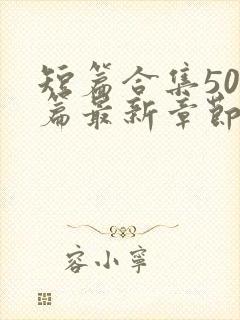 短篇合集50
篇最新章節
容小寧